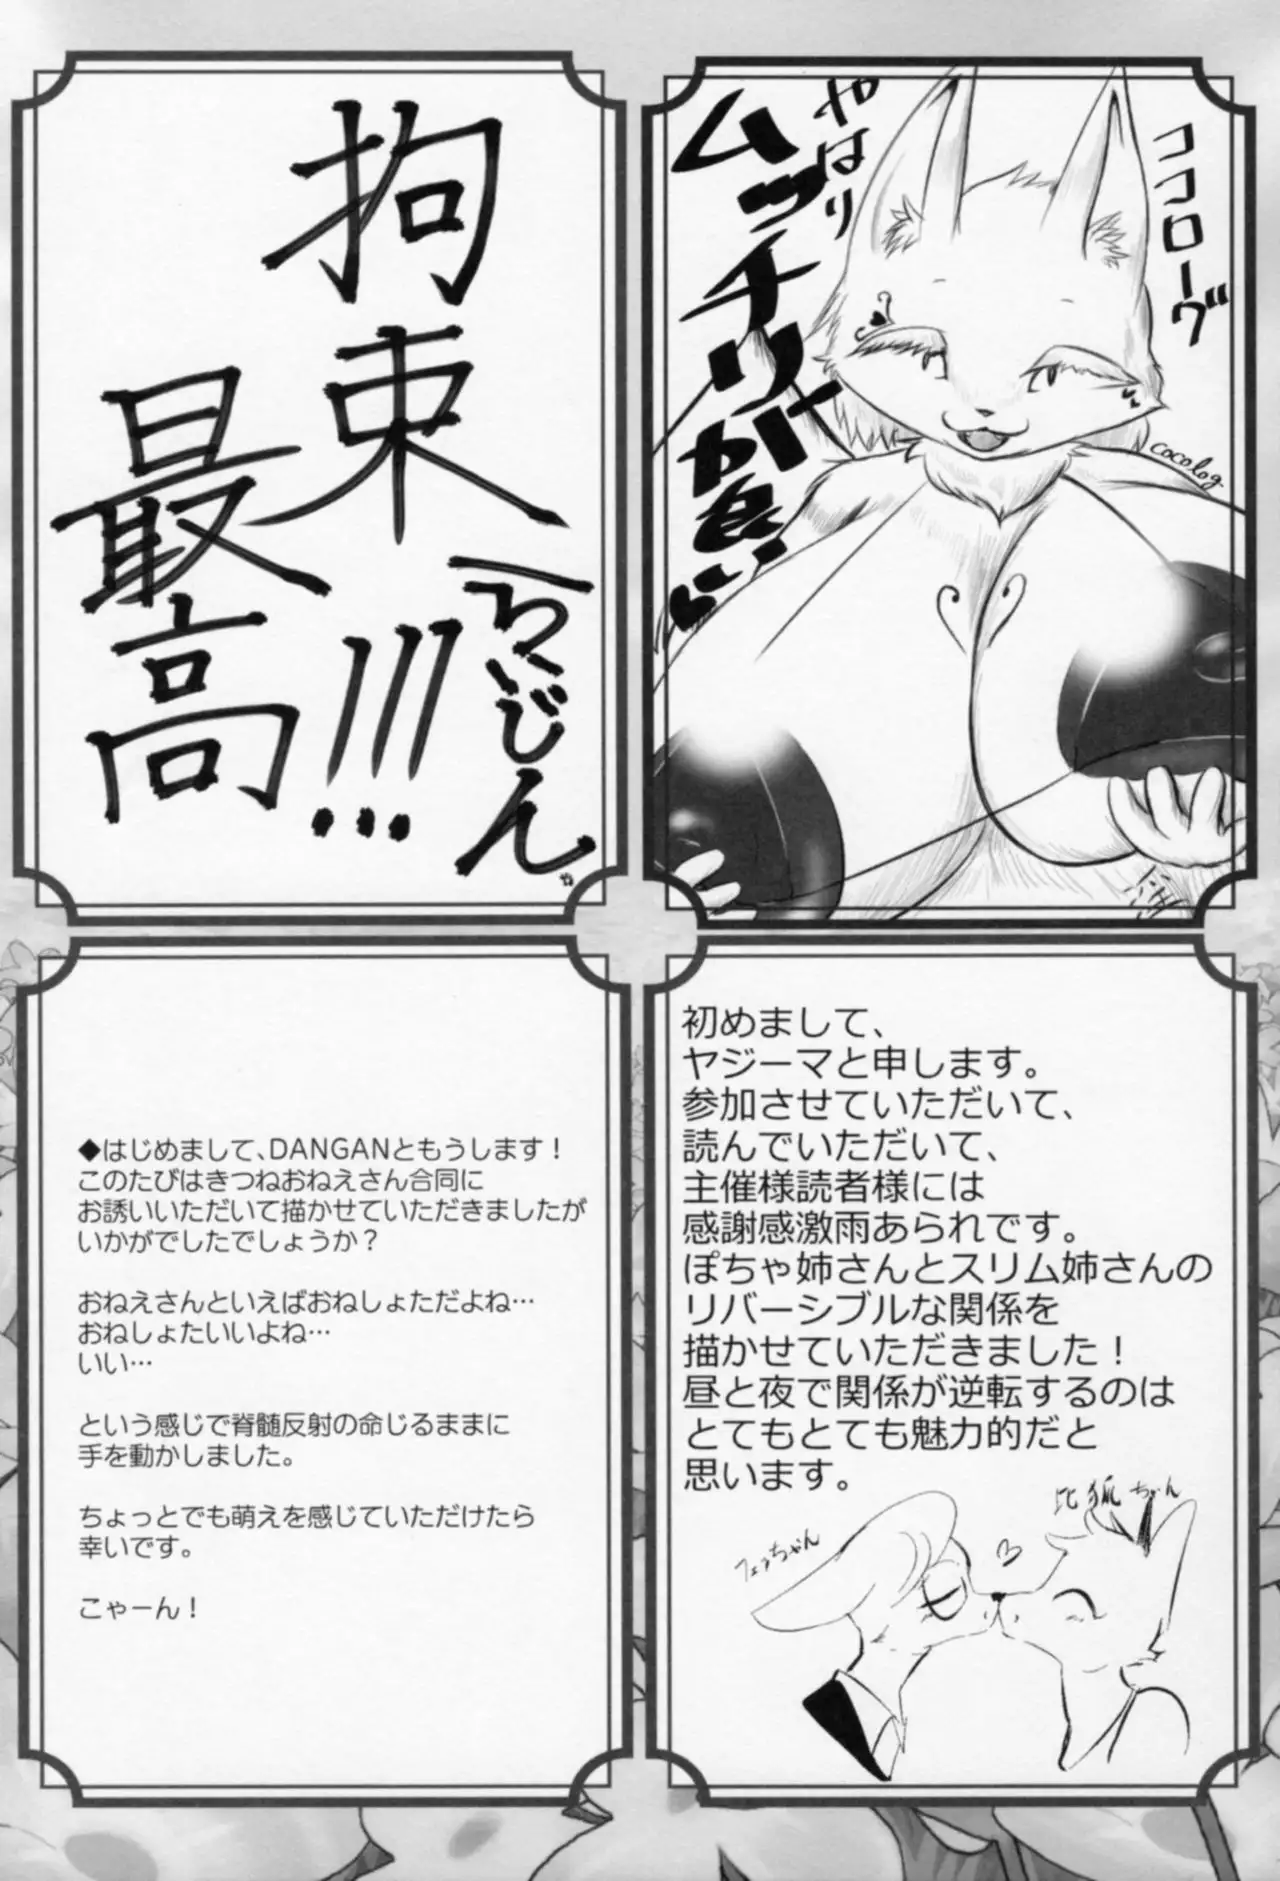 ココローグ
やはり
ムッチリが良い
cocolog
拘束
最高!!!
へちじん
初めまして、
ヤジーマと申します。
参加させていただいて、
読んでいただいて、
主催様読者様には
感謝感激雨あられです。
ぽちゃ姉さんとスリム姉さんの
リバーシブルな関係を
描かせていただきました！
昼と夜で関係が逆転するのは
とてもとても魅力的だと
思います。
比狐ちゃん
フェラちゃん
◆はじめまして、DANGANともうします！
このたびはきつねおねえさん合同に
お誘いいただいて描かせていただきましたが
いかがでしたでしょうか？
おねえさんといえばおねしょただよね…
おねしょたいいよね…
いい…
という感じで脊髄反射の命じるままに
手を動かしました。
ちょっとでも萌えを感じていただけたら
幸いです。
こゃーん！